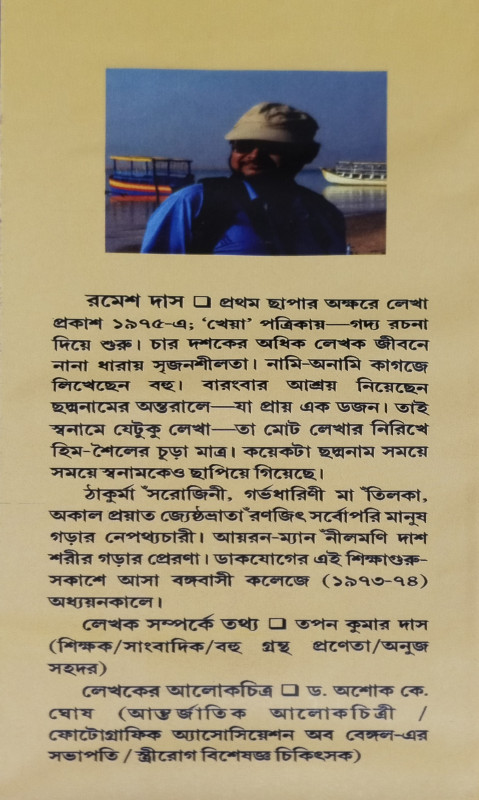 রমেশ দাস ❑ প্রথম ছাপার অক্ষরে লেখা
প্রকাশ ১৯৭৫-এ; ‘খেয়া’ পত্রিকায়—গদ্য রচনা
দিয়ে শুরু। চার দশকের অধিক লেখক জীবনে
নানা ধারায় সৃজনশীলতা। নামি-অনামি কাগজে
লিখেছেন বহু। বারংবার আশ্রয় নিয়েছেন
ছদ্মনামের অন্তরালে—যা প্রায় এক ডজন। তাই
স্বনামে যেটুকু লেখা—তা মোট লেখার নিরিখে
হিম-শৈলের চুড়া মাত্র। কয়েকটা ছদ্মনাম সময়ে
সময়ে স্বনামকেও ছাপিয়ে গিয়েছে।
ঠাকুর্মা ঁসরোজিনী, গর্ভধারিণী মা ঁতিলকা,
অকাল প্রয়াত জ্যেষ্ঠভ্রাতা ঁরণজিৎ সর্বোপরি মানুষ
গড়ার নেপথ্যচারী। আয়রন-ম্যান ঁনীলমণি দাশ
শরীর গড়ার প্রেরণা। ডাকযোগের এই শিক্ষাগুরু-
সকাশে আসা বঙ্গবাসী কলেজে (১৯৭৩-৭৪)
অধ্যয়নকালে।
লেখক সম্পর্কে তথ্য ❑ তপন কুমার দাস
(শিক্ষক/সাংবাদিক/বহু গ্রন্থ প্রণেতা/অনুজ
সহদর)
লেখকের আলোকচিত্র ❑ ড. অশোক কে.
ঘোষ (আন্তর্জাতিক আলোকচিত্রী /
ফোটোগ্রাফিক অ্যাসোসিয়েশন অব বেঙ্গল-এর
সভাপতি / স্ত্রীরোগ বিশেষজ্ঞ চিকিৎসক)